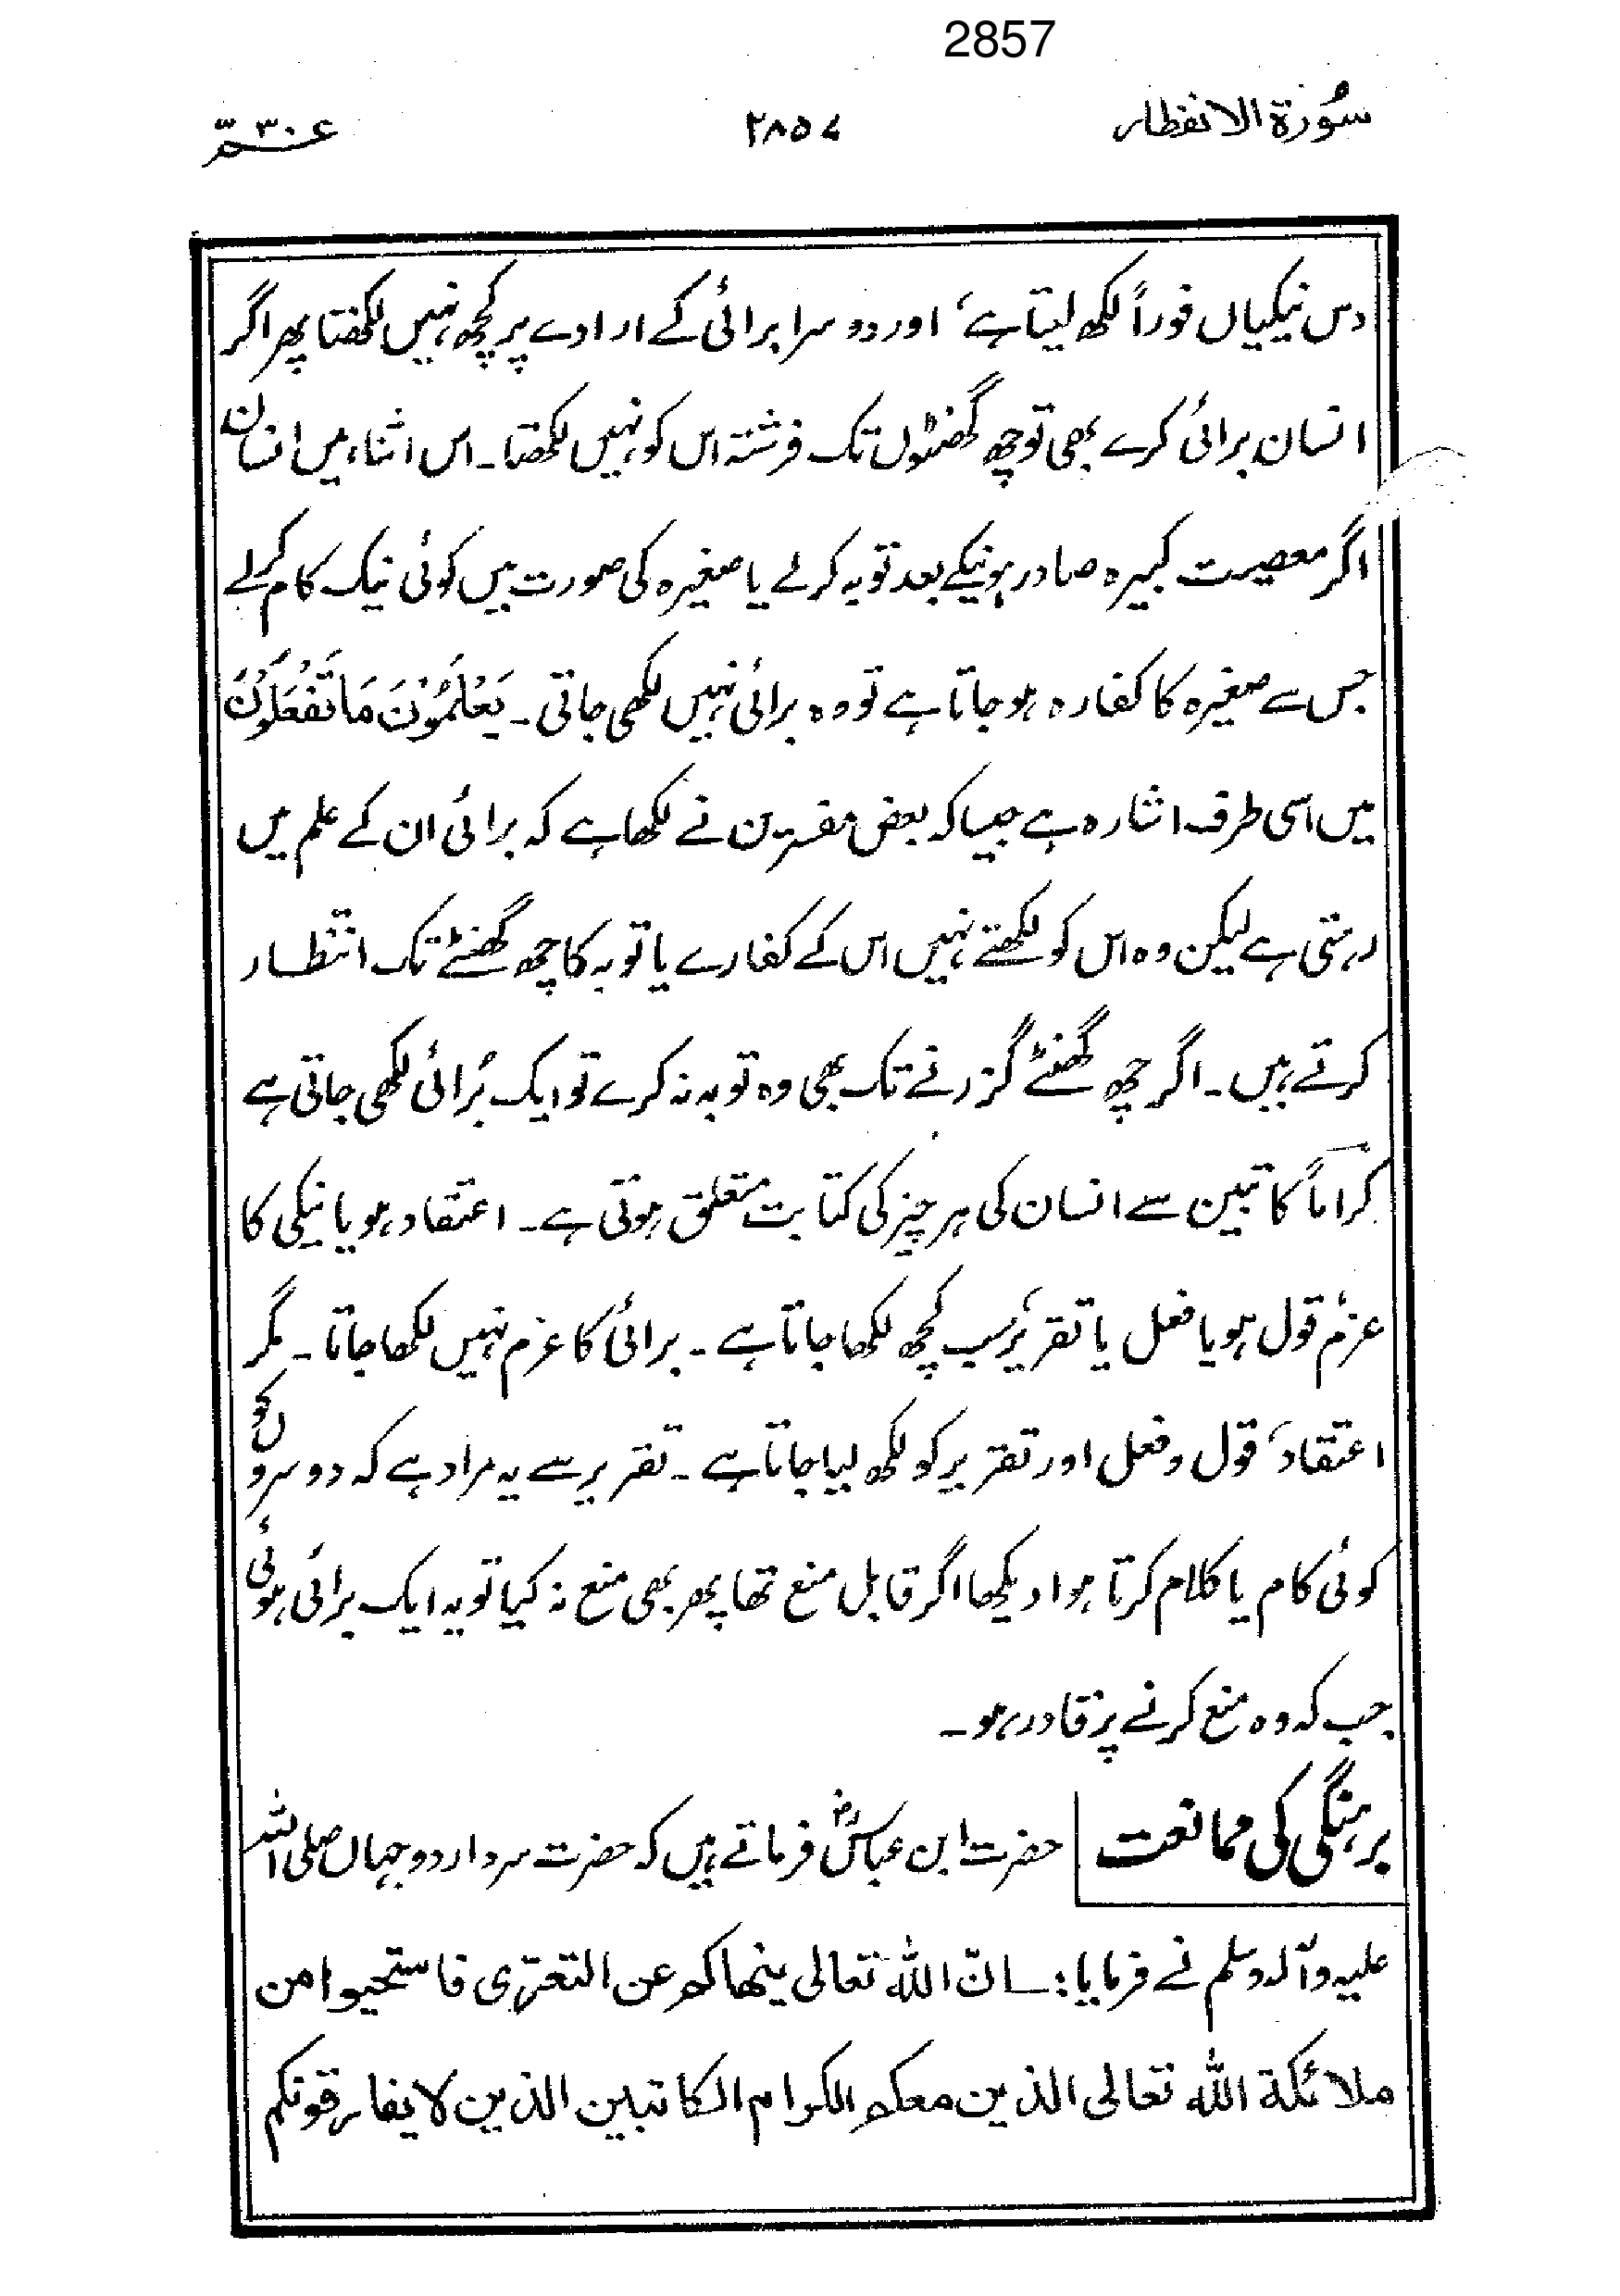 2857
سُورة الانفطار ۲۸۵۷ عمّ ۳۰
دس نیکیاں فوراً لکھ لیتا ہے، اور دوسرا برائی کے ارادے پر کچھ نہیں لکھتا پھر اگر
انسان برائی کرے بھی تو چھ گھنٹوں تک فرشتہ اس کو نہیں لکھتا۔ اس اثناء میں انسان
اگر معصیت کبیرہ صادر ہونیکے بعد توبہ کرلے یا صغیرہ کی صورت میں کوئی نیک کام کرلے
جس سے صغیرہ کا کفارہ ہو جاتا ہے تو وہ برائی نہیں لکھی جاتی۔ یَعْلَمُوْنَ مَا تَفْعَلُوْنَ
میں اسی طرف اشارہ ہے جیسا کہ بعض مفسّرین نے لکھا ہے کہ برائی ان کے علم میں
رہتی ہے لیکن وہ اس کو لکھتے نہیں اس کے کفارے یا توبہ کا چھ گھنٹے تک انتظار
کرتے ہیں۔ اگر چھ گھنٹے گزرنے تک بھی وہ توبہ نہ کرے تو ایک بُرائی لکھی جاتی ہے
کراماً کاتبین سے انسان کی ہر چیز کی کتابت متعلق ہوتی ہے۔ اعتقاد ہو یا نیکی کا
عزم، قول ہو یا فعل یا تقریر، سب کچھ لکھا جاتا ہے۔ برائی کا عزم نہیں لکھا جاتا۔ مگر
اعتقاد، قول و فعل اور تقریر کو لکھ لیا جاتا ہے۔ تقریر سے یہ مراد ہے کہ دوسروں کو
کوئی کام یا کلام کرتا ہوا دیکھا اگر قابل منع تھا پھر بھی منع نہ کیا تو یہ ایک برائی ہوئی
جب کہ وہ منع کرنے پر قادر ہو۔
برہنگی کی ممانعت حضرت ابن عباسؓ فرماتے ہیں کہ حضرت سردار دو جہاں صلی اللہ
علیہ وآلہ وسلم نے فرمایا:۔ انّ اللہ تعالی ینھاکم عن التعرّی فاستحیوا من
ملائکة اللہ تعالی الذین معکم الکرام الکاتبین الذین لا یفارقونکم